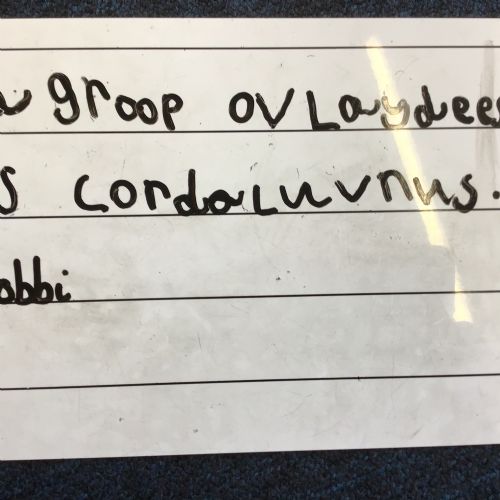 a groop ov Laydees
s cordaLuvnus.
obbi